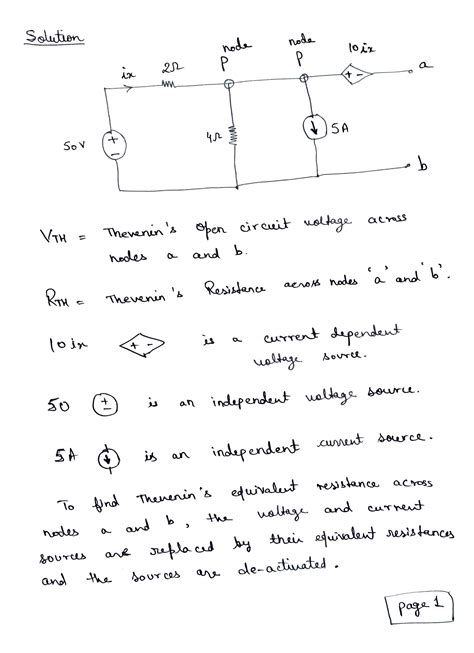 Solution
node
P
node
P
10ix
a
ix
2Ω
50V
4Ω
5A
b
VTH = Thevenin's open circuit voltage across
nodes a and b.
RTH = Thevenin's Resistance across nodes 'a' and 'b'.
10ix is a current dependent
voltage source.
50 is an independent voltage source.
5A is an independent current source.
To find Thevenin's equivalent resistance across
nodes a and b, the voltage and current
sources are replaced by their equivalent resistances
and the sources are de-activated.
page 1